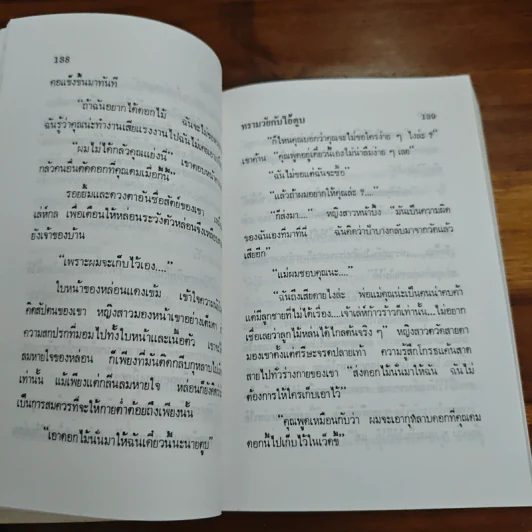 138
คอแข็งขึ้นมาทันที
"ถ้าฉันอยากได้ดอกไม้ ฉันจะไม่ขอ
ฉันรู้ว่าคุณน่ะทำงานเสียแรงงานไปฉันไม่
"ผมไม่ได้กลัวคุณแย่งนี่" เขาตอบหน้า
กลัวคนอื่นคัดดอกที่คุณดมเมื่อกี้นี้"
รอยยิ้มและดวงตาอันซื่อสัตย์ของเขา
เล่ห์กล เพื่อเตือนให้หล่อนระวังตัวหล่อนจึงเพียง
ยังเจ้าของบ้าน
"เพราะผมจะเก็บไว้เอง...."
ใบหน้าของหล่อนแดงเข้ม เข้าใจความ
คิดสัปดนของเขา หญิงสาวมองหน้าเขาอย่างเดือด
ความสกปรกที่มอมไปทั้งใบหน้าและเนื้อตัว เขา
ลมหายใจของหล่อน ก็เพียงที่มันติดกลีบกุหลาบไป
เท่านั้น แม้เพียงแต่กลิ่นลมหายใจ หล่อนก็ยังคิด
เป็นการสมควรที่จะให้กายต่ำต้อยถึงเพียงนั้น
"เอาดอกไม้นั่นมาให้ฉันเดี๋ยวนี้นะนายตูบ"
ทรามวัยกับไอ้ตูบ 139
"ก็ไหนคุณบอกว่าคุณจะไม่ขอใครง่าย ๆ ไงล่ะ ฮ"
เขาค้าน "คุณพูดอยู่เดี๋ยวนี้เองไม่น่าลืมง่าย ๆ เลย"
"ฉันไม่ขอแต่ฉันจะซื้อ"
"แล้วถ้าผมอยากให้คุณล่ะ ฮ...."
"ก็ส่งมา...." หญิงสาวหน้าบึ้ง "มันเป็นความผิด
ของฉันเองที่มาที่นี่ ฉันคิดว่าป้าบางกลับมาจากวัดแล้ว
เสียอีก"
"แม่ผมชอบคุณนะ...."
"ฉันถึงเสียดายไงล่ะ พ่อแม่คุณน่ะเป็นคนน่าคบค้า
แต่มีลูกชายที่ไม่ได้เรื่อง...เจ้าเล่ห์กาวร้าวก็เท่านั้น...ไม่อยาก
เชื่อเลยว่าลูกไม้หล่นได้ไกลต้นจริง ๆ" หญิงสาวตวัดสายตา
มองเขาตั้งแต่ศีรษะจรดปลายเท้า ความรู้สึกโกรธแค้นสาด
ใส่ไปทั่วร่างกายของเขา "ส่งดอกไม้นั่นมาให้ฉัน ฉันไม่
ต้องการให้ใครเก็บเอาไว้"
"คุณพูดเหมือนกับว่า ผมจะเอากุหลาบดอกที่คุณดม
ดอกนี้ไปเก็บไว้ในเว็ดซี่"